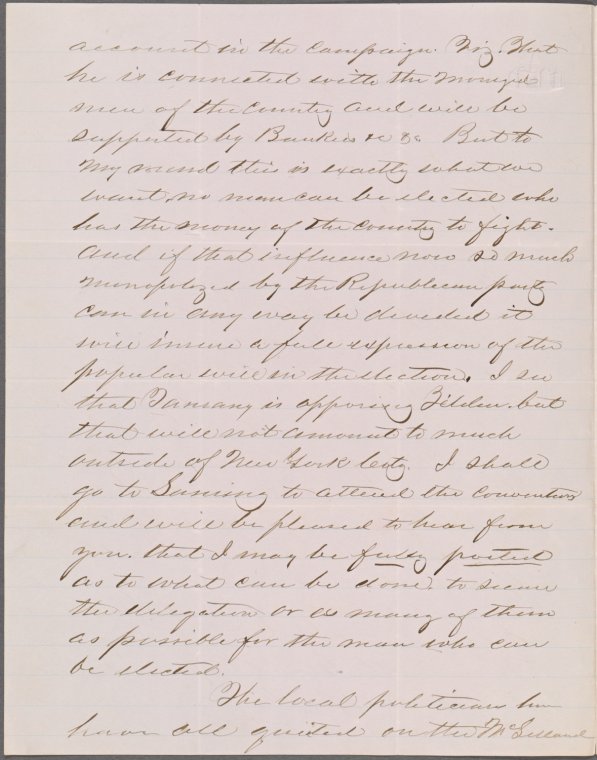 account in the Campaign. Viz. That
he is connected with the Moneyed
men of the Country and will be
supported by Bankers &c &c But to
my mind this is exactly what we
want, no man can be elected who
has the money of the Country to fight.
and if that influence now so much
monopolized by the Republican party
can in any way be devided it
will insure a full expression of the
popular will in the election. I see
that Tamany is opposing Tilden. but
that will not amount to much
outside of New York City. I shall
go to Lansing to attend the Convention
and will be pleased to hear from
you. that I may be fully posted
as to what can be done. to secure
the delegation or as many of them
as possible for the man who can
be elected.
The local politicians
have all on the